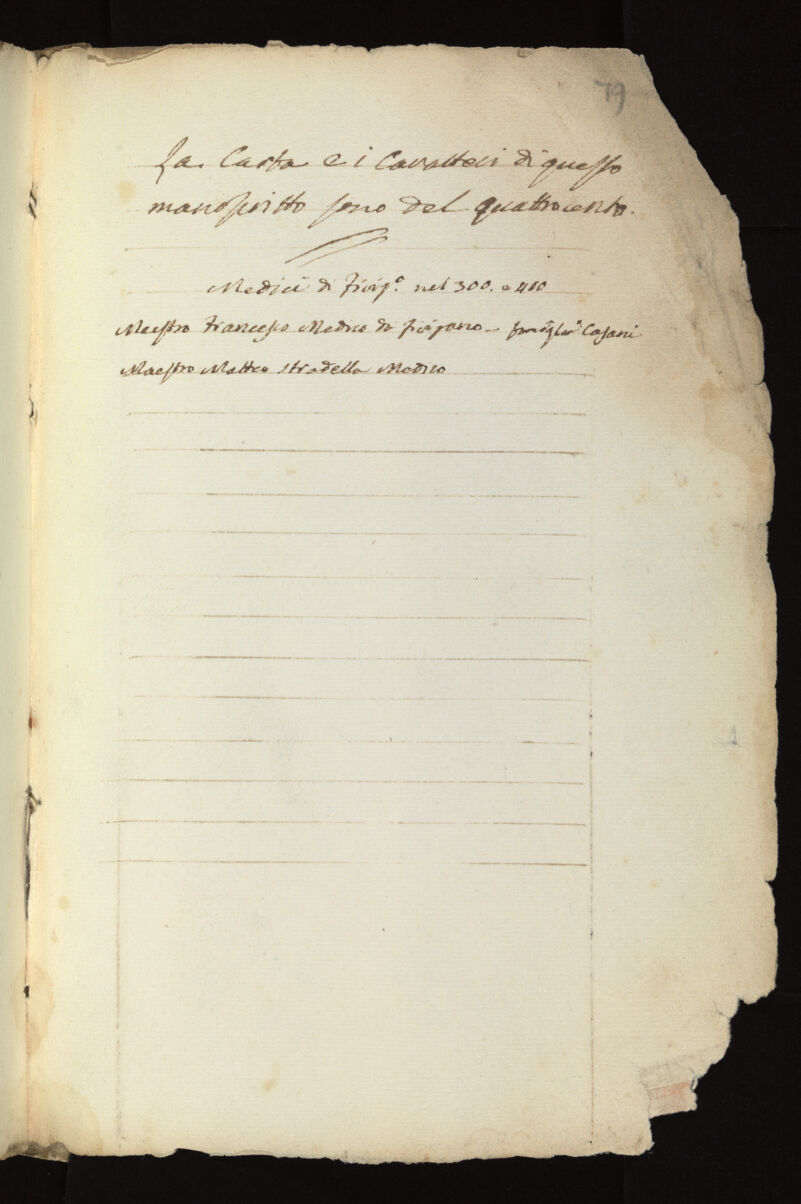 79
La Carta e i Caratteri di questo
manoscritto sono del quattrocento.
Medici di Fivizº. nel 300. e 400
Maestro Francesco Medico da Fivizano - famiglia Casani
Maestro Matteo Stradella Medico